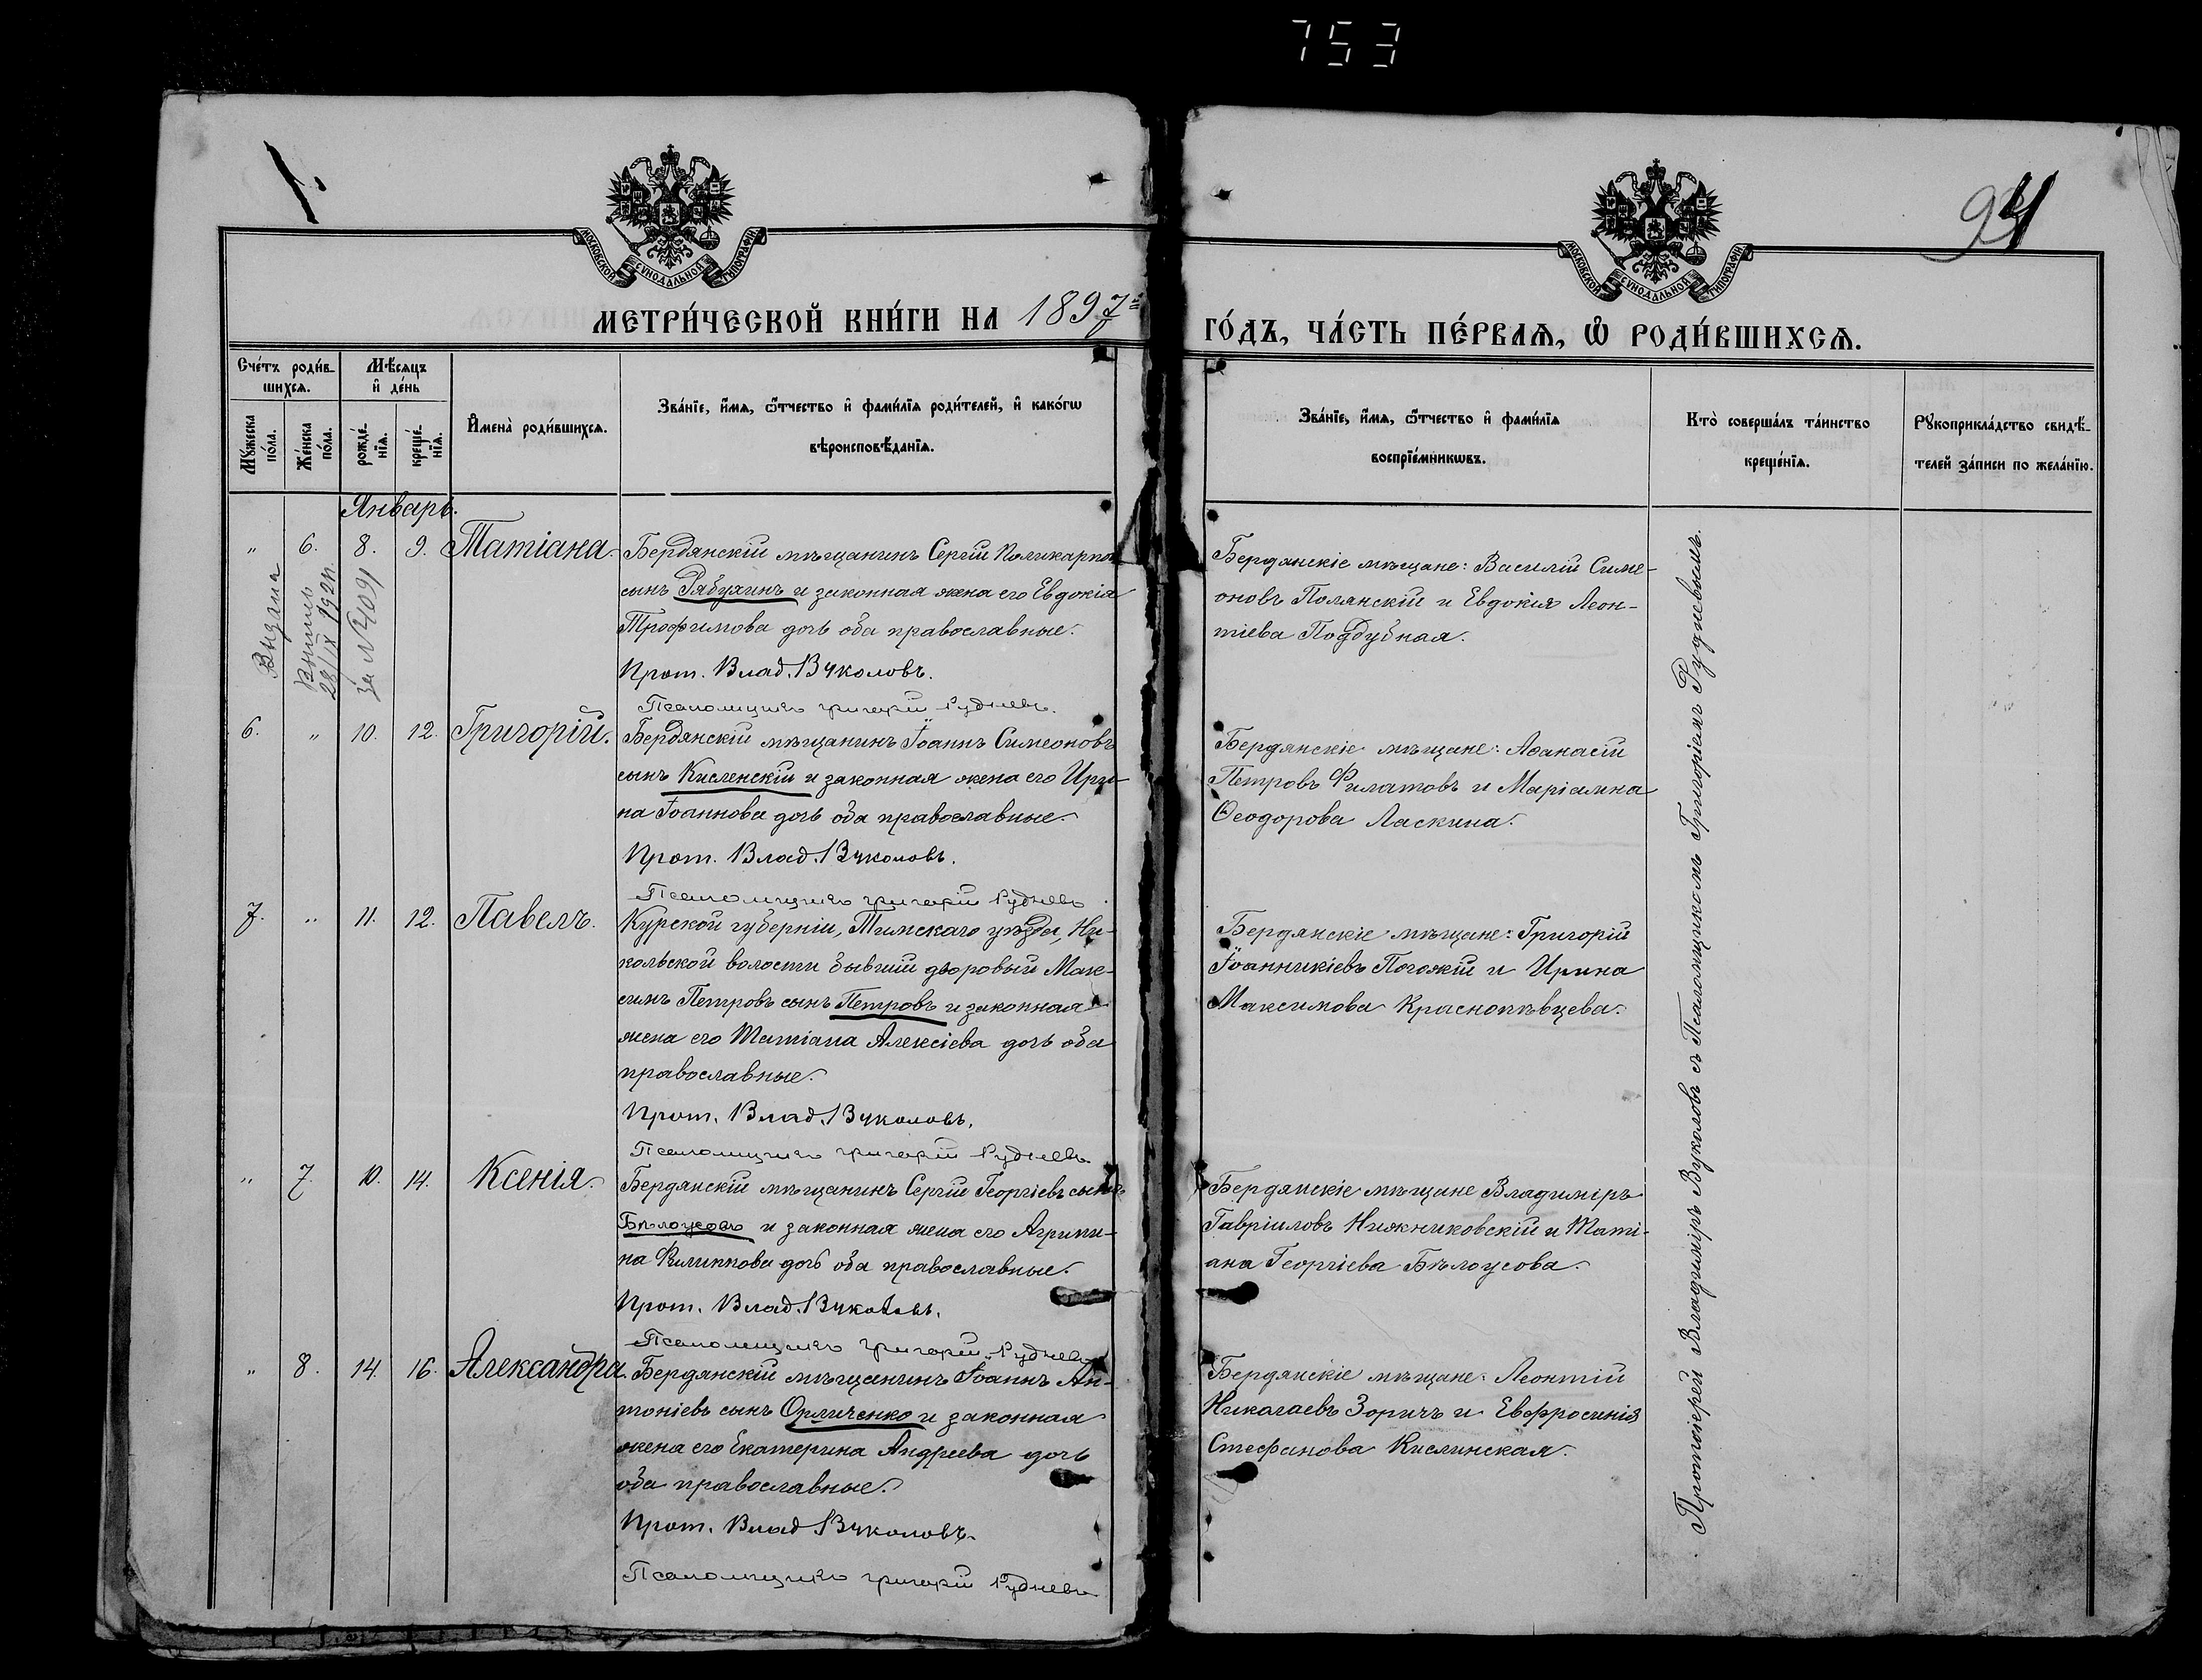 753
94
МОСКОВСКОЙ СѴНОДАЛЬНОЙ ТИПОГРАФІИ
МОСКОВСКОЙ СѴНОДАЛЬНОЙ ТИПОГРАФІИ
МЕТРИ́ЧЕСКОЙ КНИ́ГИ НА 1897й
ГО́ДЪ, ЧА́СТЬ ПЕ́РВАѦ, Ѽ РОДИ́ВШИХСѦ.
Сче́тъ роди́в-
шихсѧ.
Мѣ́сѧцъ
и҆ де́нь
Мꙋ́жеска
по́ла.
Же́нска
по́ла.
рожде́-
нїѧ.
креще́-
нїѧ.
И҆мена̀ роди́вшихсѧ.
Зва́нїе, и҆́мѧ, ѻ҆́тчество и҆ фами́лїѧ роди́телей, и҆ како́гѡ
вѣроисповѣ́данїѧ.
Зва́нїе, и҆́мѧ, ѻ҆́тчество и҆ фами́лїѧ
воспрїе́мникѡвъ.
Кто̀ соверша́лъ та́инство
креще́нїѧ.
Рꙋкоприкла́дство свидѣ́-
телей за́писи по жела́нїю.
Январь.
" 6. 8. 9. Татіана.
Бердянскій мѣщанинъ Сергій Поликарповъ
сынъ Рябухинъ и законная жена его Евдокія
Трофимова дочь оба православные.
Прот. Влад. Вуколовъ.
Псаломщикъ Григорій Рудневъ.
Бердянскіе мѣщане: Василій Симе-
оновъ Полянскій и Евдокія Леон-
тіева Поддубная.
Выдана
28/IX 192
за № 4091
6. " 10. 12. Григорій.
Бердянскій мѣщанинъ Іоаннъ Симеоновъ
сынъ Кисленскій и законная жена его Ири-
на Іоаннова дочь оба православные.
Прот. Влад. Вуколовъ.
Псаломщикъ Григорій Рудневъ
Бердянскіе мѣщане: Аѳанасій
Петровъ Филатовъ и Маріамна
Ѳеодорова Ласкина.
7. " 11. 12. Павелъ.
Курской губерніи, Тимскаго уѣзда, Ни-
кольской волости бывшій дворовый Мак-
симъ Петровъ сынъ Петровъ и законная
жена его Татіана Алексіева дочь оба
православные.
Прот. Влад. Вуколовъ.
Псаломщикъ Григорій Рудневъ
Бердянскіе мѣщане: Григорій
Іоанникіевъ Погожій и Ирина
Максимова Краснопѣвцева.
" 7. 10. 14. Ксенія.
Бердянскій мѣщанинъ Сергій Георгіевъ сынъ
Бѣлоусовъ и законная жена его Агрипи-
на Филиппова дочь оба православные.
Прот. Влад. Вуколовъ.
Псаломщикъ Григорій Рудневъ
Бердянскіе мѣщане Владиміръ
Гавріиловъ Нижниковскій и Тати-
ана Георгіева Бѣлоусова.
" 8. 14. 16. Александра.
Бердянскій мѣщанинъ Іоаннъ Ан-
тоніевъ сынъ Орличенко и законная
жена его Екатерина Андреева дочь
оба православные.
Прот. Влад Вуколовъ.
Псаломщикъ Григорій Рудневъ
Бердянскіе мѣщане: Леонтій
Николаевъ Зоричъ и Евфросинія
Стефанова Кислинская.
Протоіерей Владиміръ Вуколовъ съ Псаломщикомъ Григоріемъ Рудневымъ.